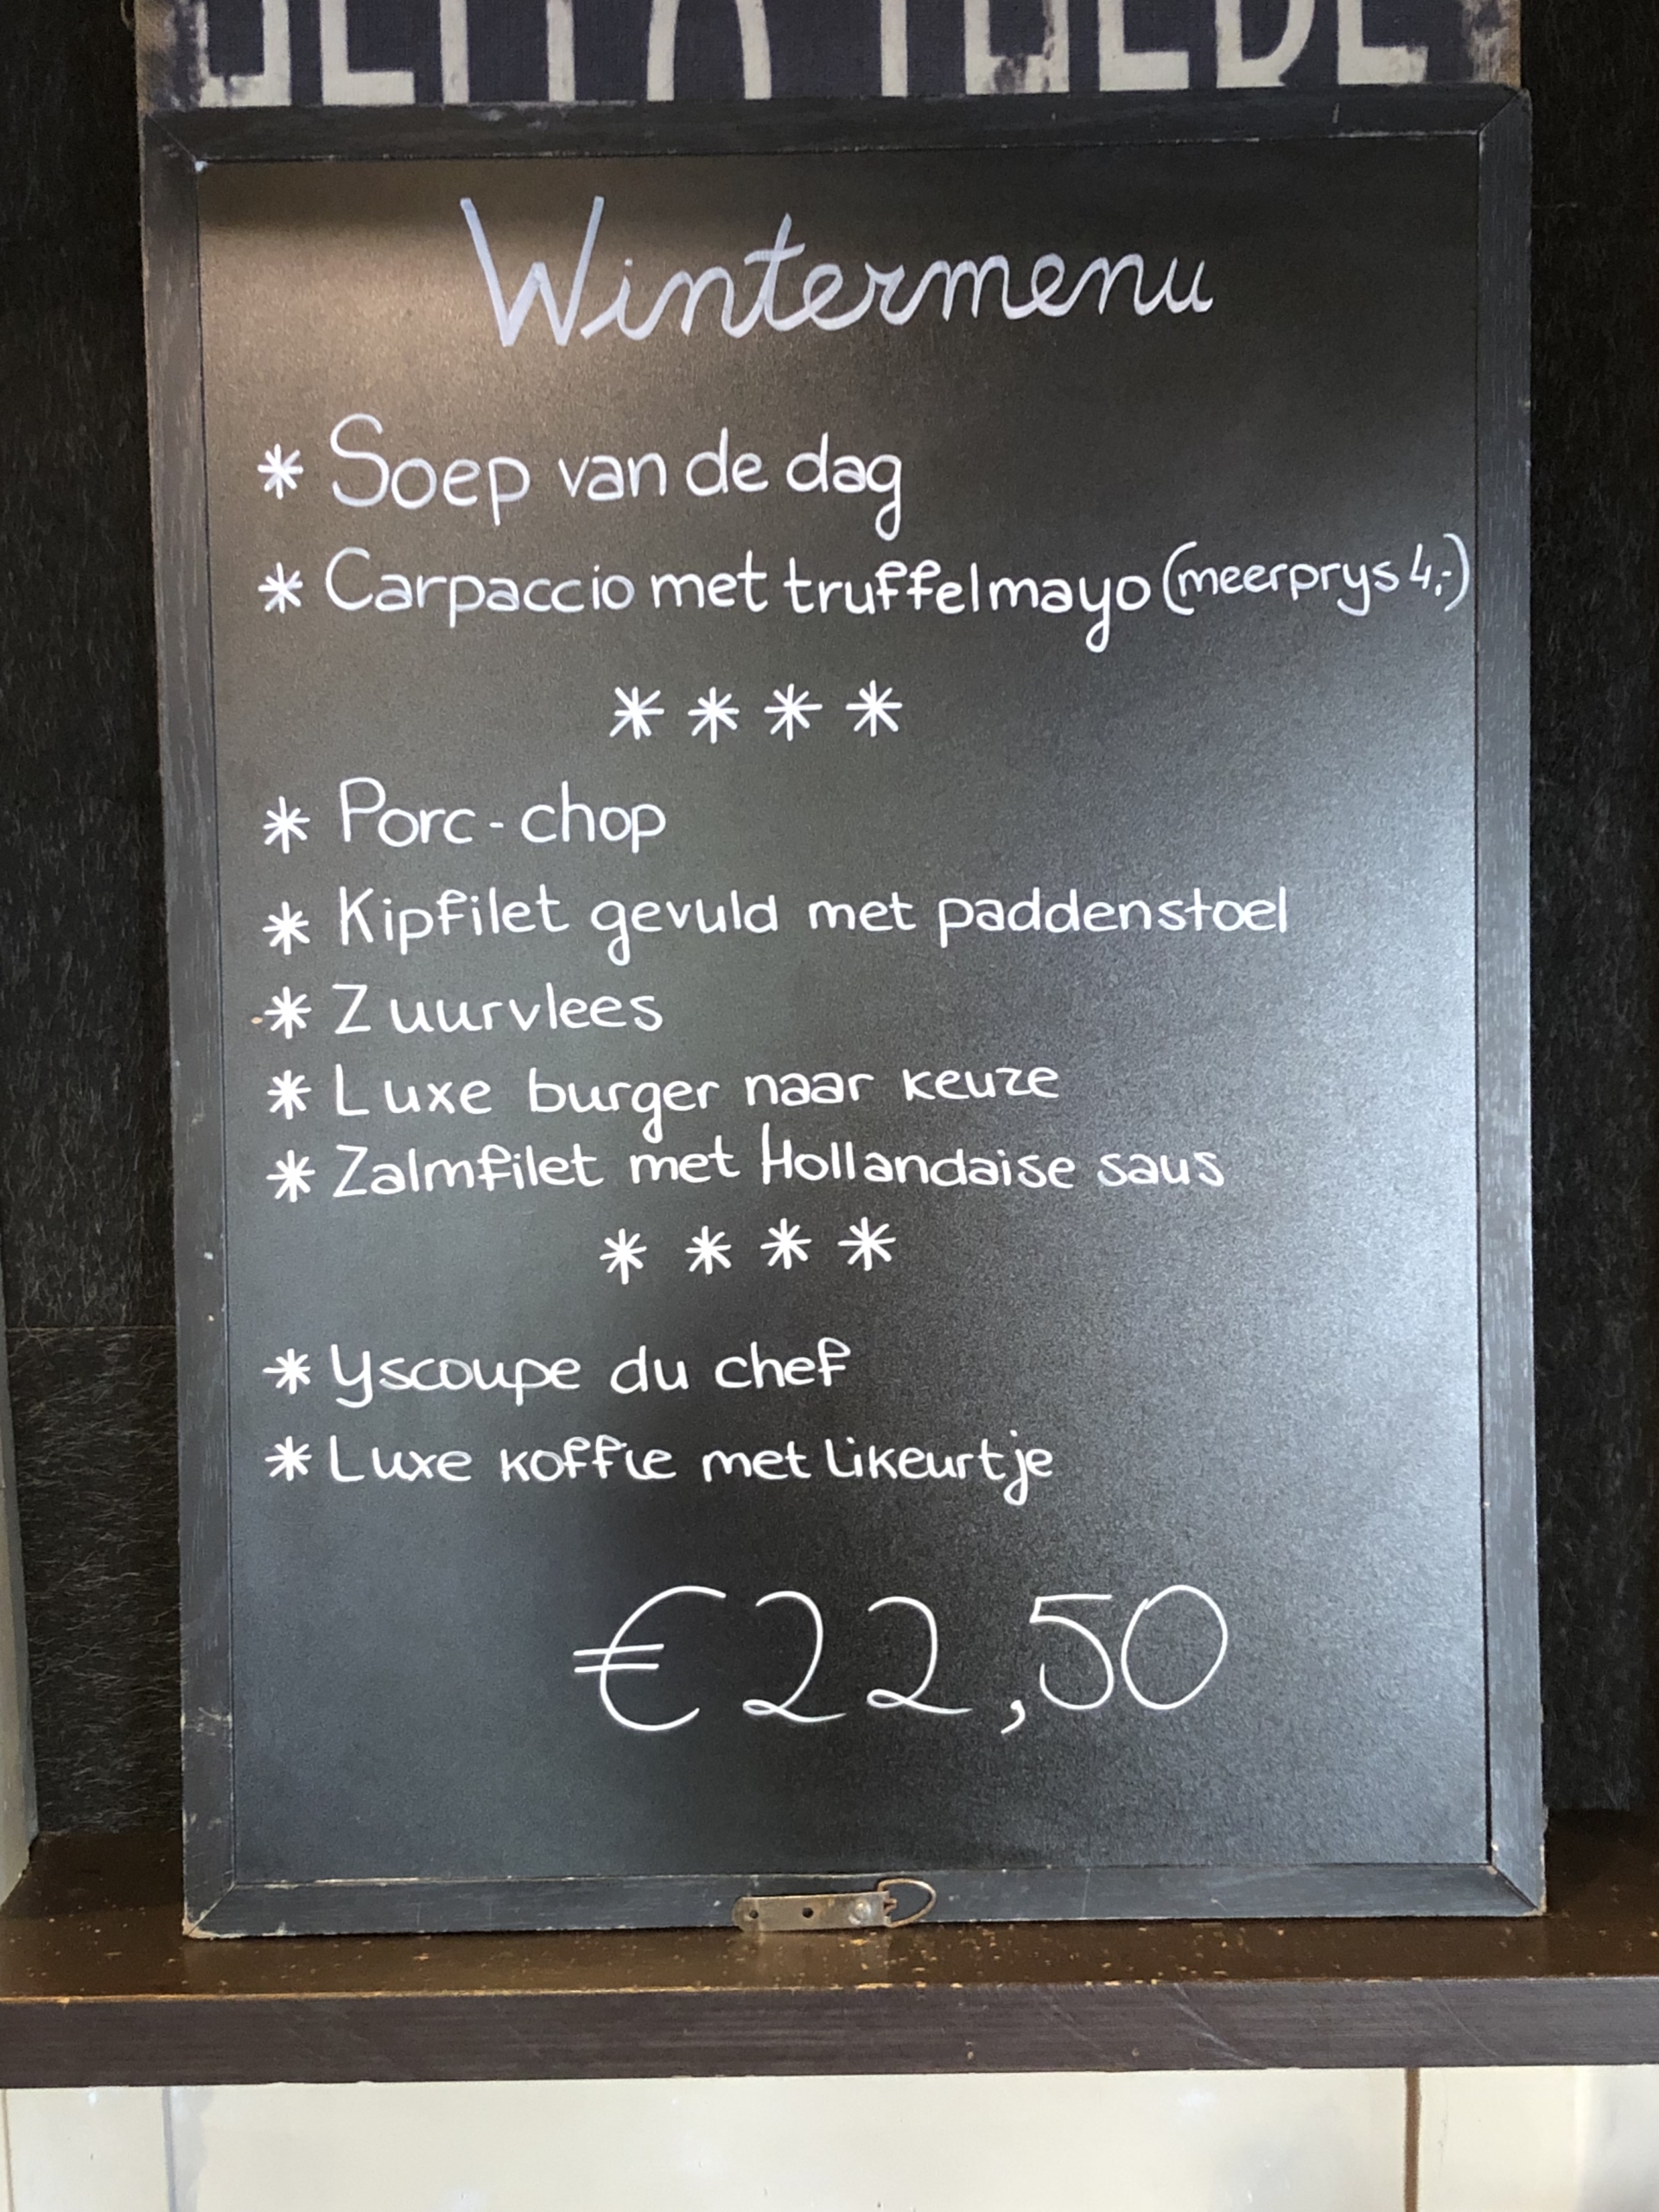 Wintermenu
* Soep van de dag
* Carpaccio met truffelmayo (meerprys 4,-)
* * * *
* Porc-chop
* Kipfilet gevuld met paddenstoel
* Zuurvlees
* Luxe burger naar keuze
* Zalmfilet met Hollandaise saus
* * * *
* Yscoupe du chef
* Luxe koffie met likeurtje
€22,50